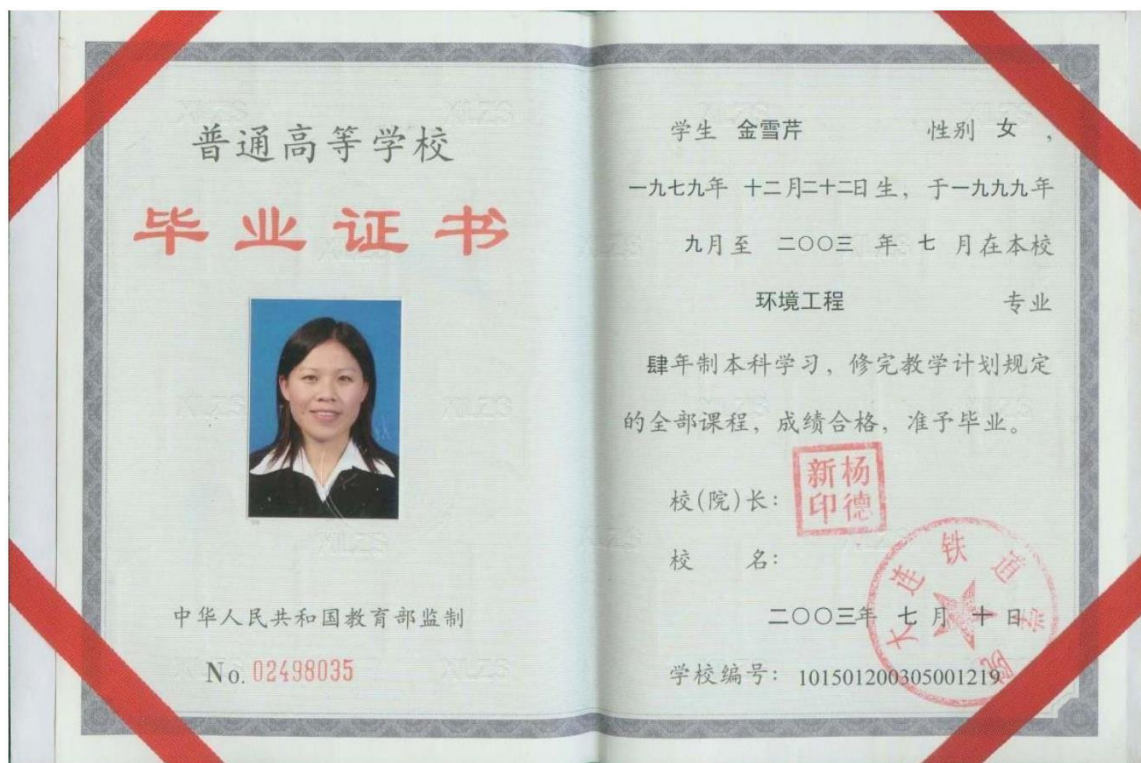 普通高等学校
毕业证书
中华人民共和国教育部监制
No. 02498035
学生 金雪芹 性别 女，
一九七九年 十二月二十二日生，于一九九九年
九月至 二〇〇三 年 七 月在本校
环境工程 专业
肆年制本科学习，修完教学计划规定
的全部课程，成绩合格，准予毕业。
校(院)长：
杨德新印
校 名：
大连铁道学院
二〇〇三年 七 月 十 日
学校编号：101501200305001219
XLZS